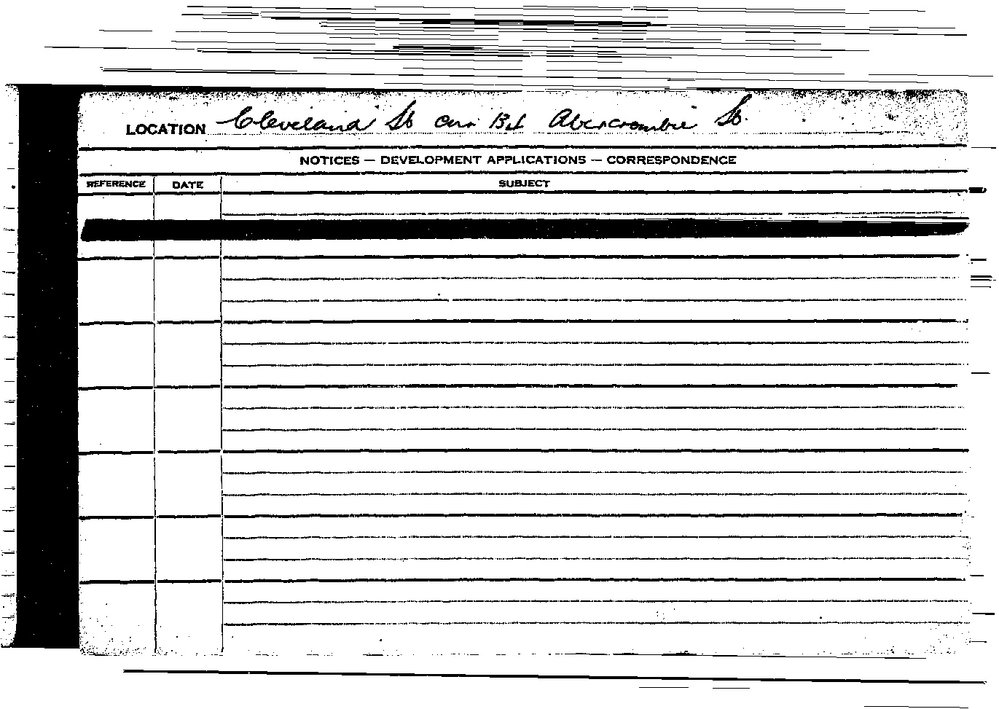 LOCATION Cleveland St Abercrombie St.
NOTICES — DEVELOPMENT APPLICATIONS — CORRESPONDENCE
REFERENCE DATE SUBJECT